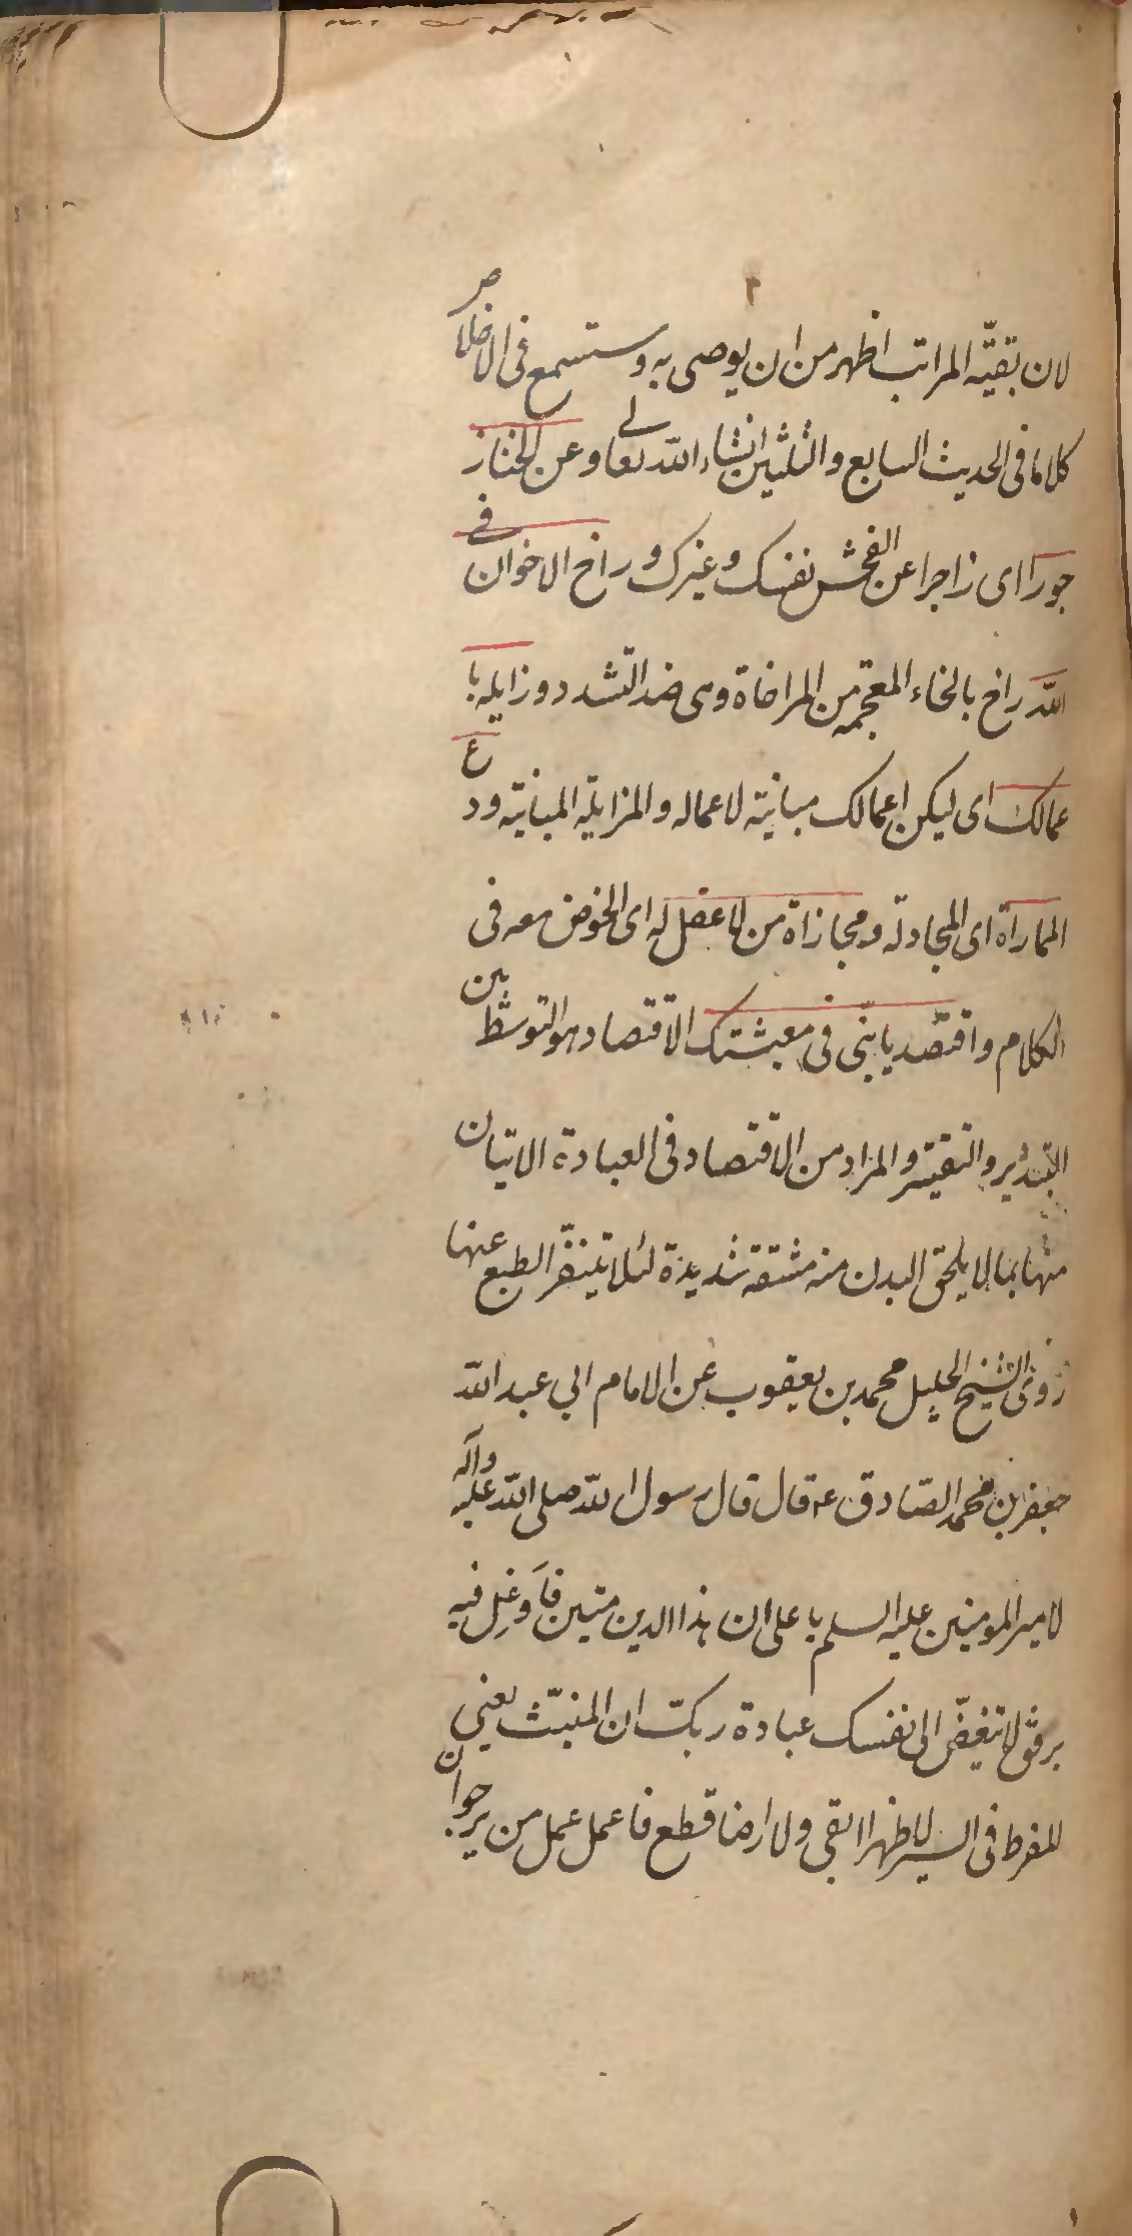 ٢
لان بقيّه المراتب اظهر من ان يوصى به وستسمع فى الاخلاص
كلاما فى الحديث السابع والثلثين انشاء الله تعالى وعن الخنا ز
جورا اى زاجرا عن الفحش نفسك وغيرك وراخ الاخوان فى
الله راخ بالخاء المعجمه من المراخاة وهى ضد التشدد وزايله با
عمالك اى ليكن اعمالك مباينة لاعماله والمزايلة المباينة ودع
المماراة اى المجادلة ومجازاة من لا عقل له اى الخوض معه فى
الكلام واقتصد يا بنّى فى معيشتك الاقتصاد هو التوسّط بين
التبذير والتقتير والمراد من الاقتصاد فى العبادة الاتيان
منها بما لا يلحق البدن منه مشقة شديدة لئلا يتنفّر الطبع عنها
روى الشيخ الجليل محمد بن يعقوب عن الامام ابي عبد الله
جعفر بن محمد الصّادق ع قال قال رسول الله صلى الله عليه وآله
لامير المومنين عليه السلم يا على ان هذا الدين متين فاَوغِل فيه
برفق لا تبغّض الى نفسك عبادة ربك ان المنبتّ يعنى
للمفرط فى السير لا ظهرا ابقى ولا ارضا قطع فاعمل عمل من يرجوا ان